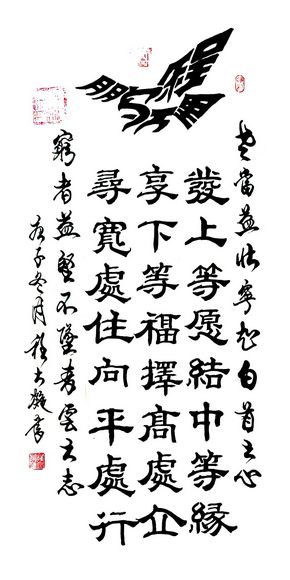 鵬程萬里
老當益壯寧知白首之心
發上等愿結中等緣
享下等福擇高處立
尋寬處住向平處行
窮者益堅不墜青雲之志
子冬月程大書